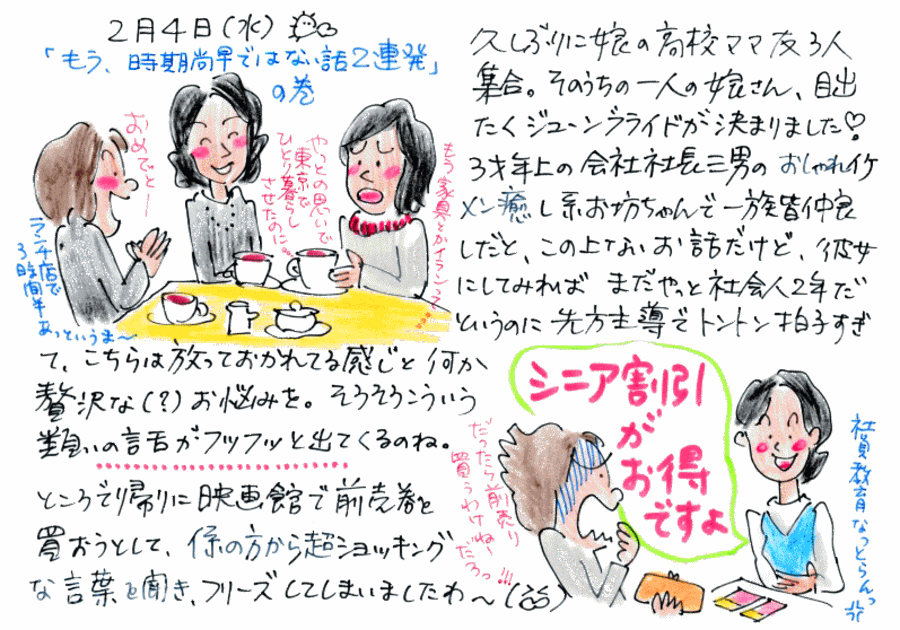 2月4日(水)
「もう、時期尚早ではない話2連発」
の巻
おめでとー
やっとの思いで
東京で
ひとり暮らし
させたのに。
もう家具とかイランって
ランチ店で
3時間半
あっというま〜
久しぶりに娘の高校ママ友3人
集合。そのうちの一人の娘さん、目出
たくジューンブライドが決まりました♡
3才年上の会社社長三男のおしゃれイケ
メン癒し系お坊ちゃんで一族皆仲良
しだと、この上ないお話だけど、彼女
にしてみれば まだやっと社会人2年だ
というのに先方主導でトントン拍子すぎ
て、こちらは放っておかれてる感じと何か
贅沢な(?)お悩みを。そろそろこういう
類いの言舌がフツフツと出てくるのね。
ところで帰りに映画館で前売巻を
買おうとして、係の方から超ショッキング
な言葉を聞き、フリーズしてしまいましたわ〜
シニア割引
が
お得
ですよ
だったら前売り
買うわけねー
だろっ!!!
社員教育なっとらんっ